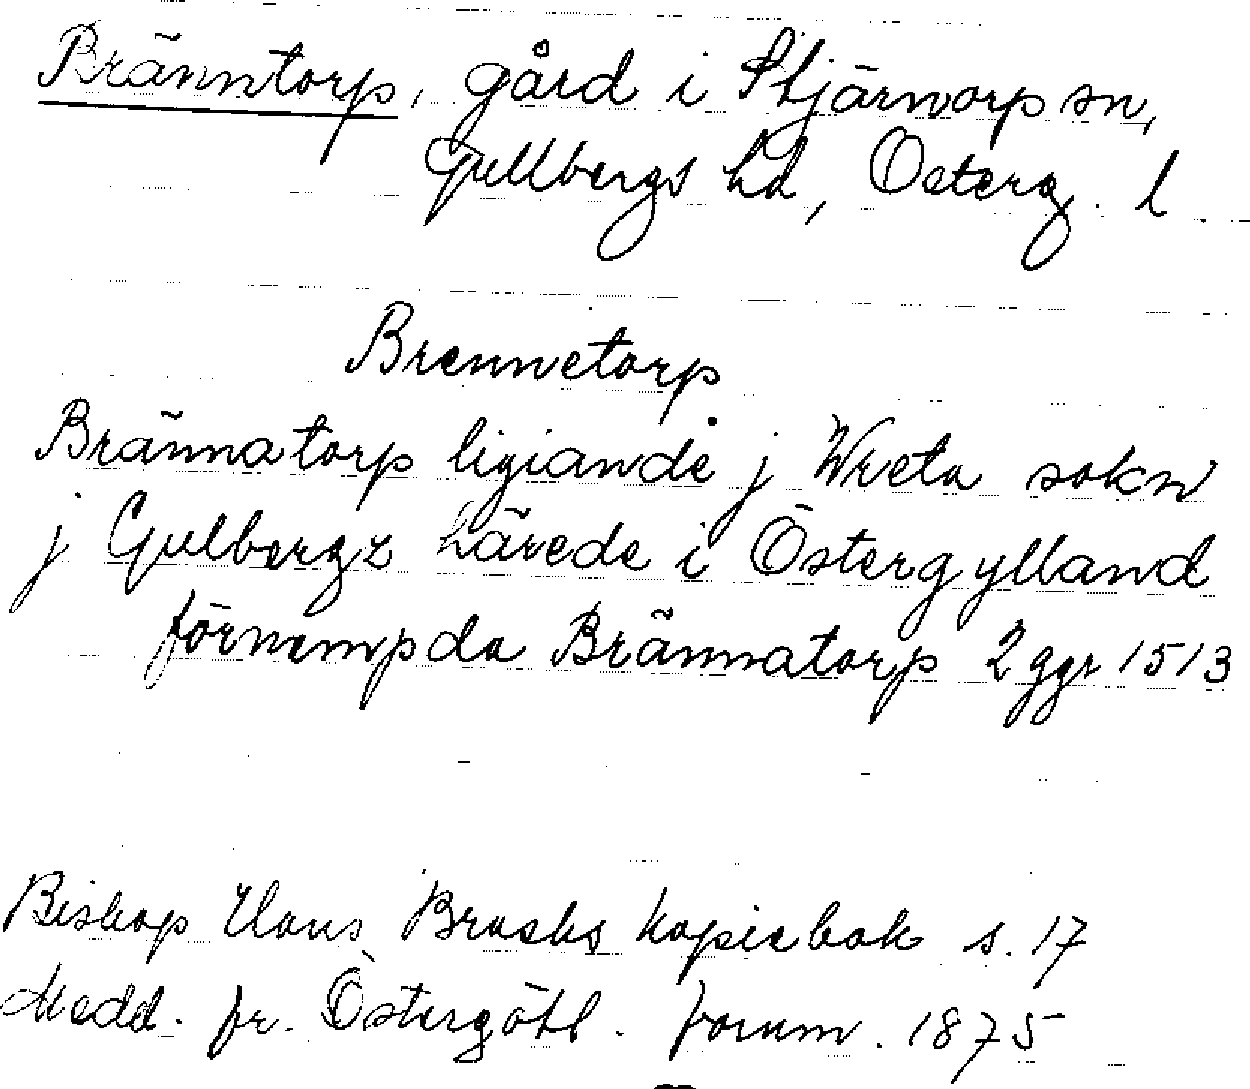 Bränntorp, gård i Stjärnorp sn,
Gullbergs hd, Österg. l
Brennetorp
Brännatorp ligiande j Wreta sokn
j Gulbergz härede i Östergylland
förnempda Brännatorp 2 ggr 1513
Biskop Hans Brasks kopiebok s. 17
Medd. fr. Östergötl. fornm. 1875